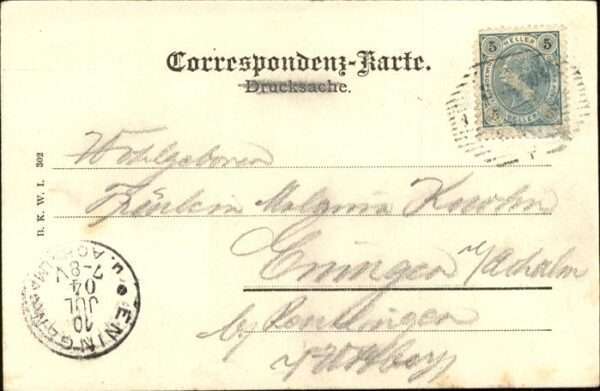 Correspondenz-Karte.
Drucksache.
5 HELLER 5
B. K. W. I. 302
Wohlgeboren
Fräulein
Eningen u/Achalm
by Reutlingen
Württbg
ENINGEN u. ACHALM
10 JUL 04
7-8 V